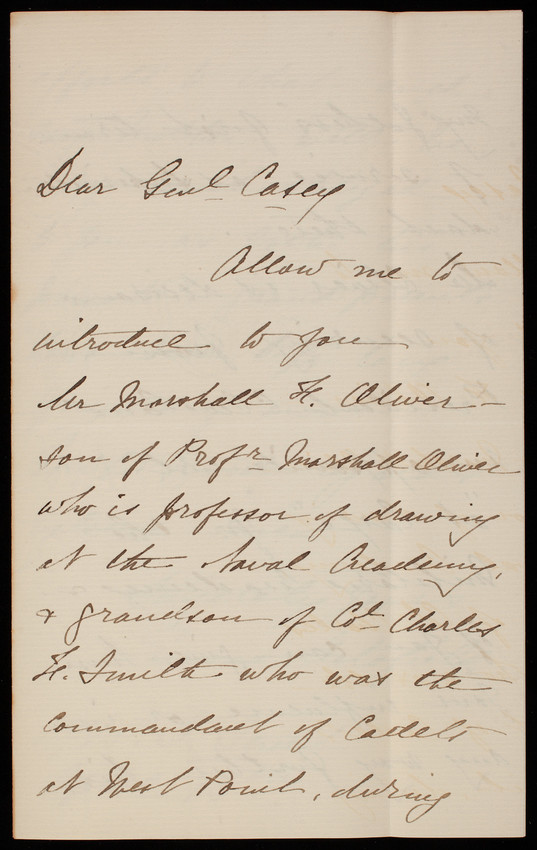 Dear Genl Casey
Allow me to
introduce to you
Mr Marshall F. Oliver –
son of Profr Marshall Oliver
who is professor of drawing
at the Naval Academy,
& grandson of Col Charles
F. Smith who was the
commandant of Cadets
at West Point, during